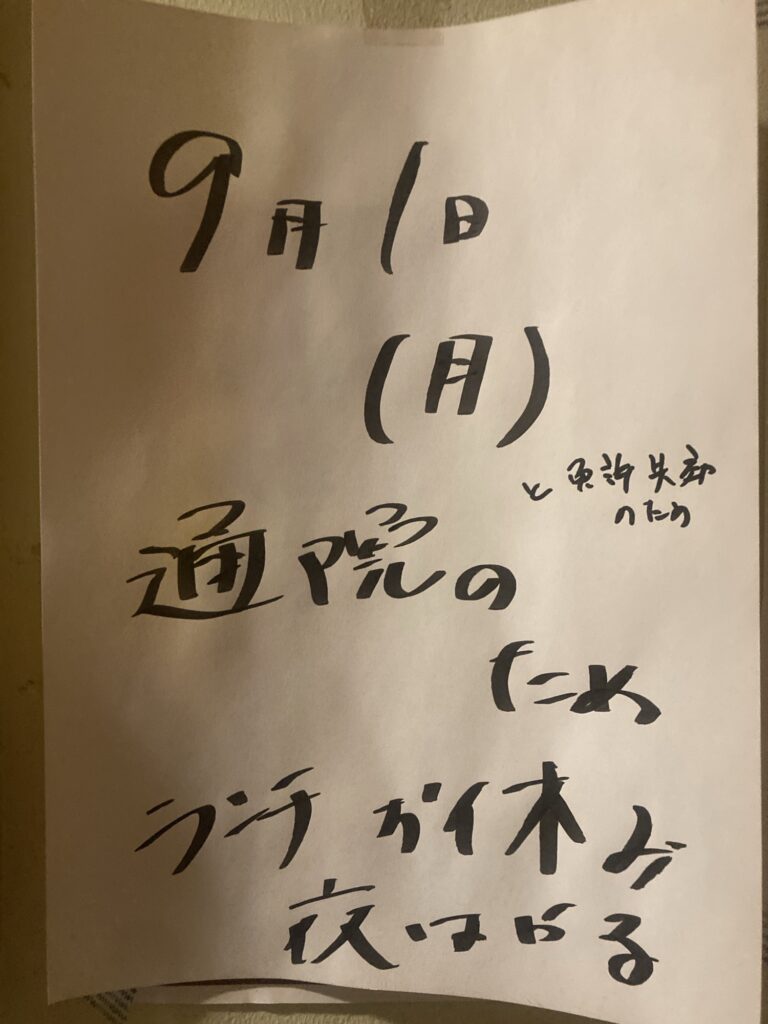 9月1日
(月)
と免許失効
のため
通院の
ため
ランチお休み
夜はやる